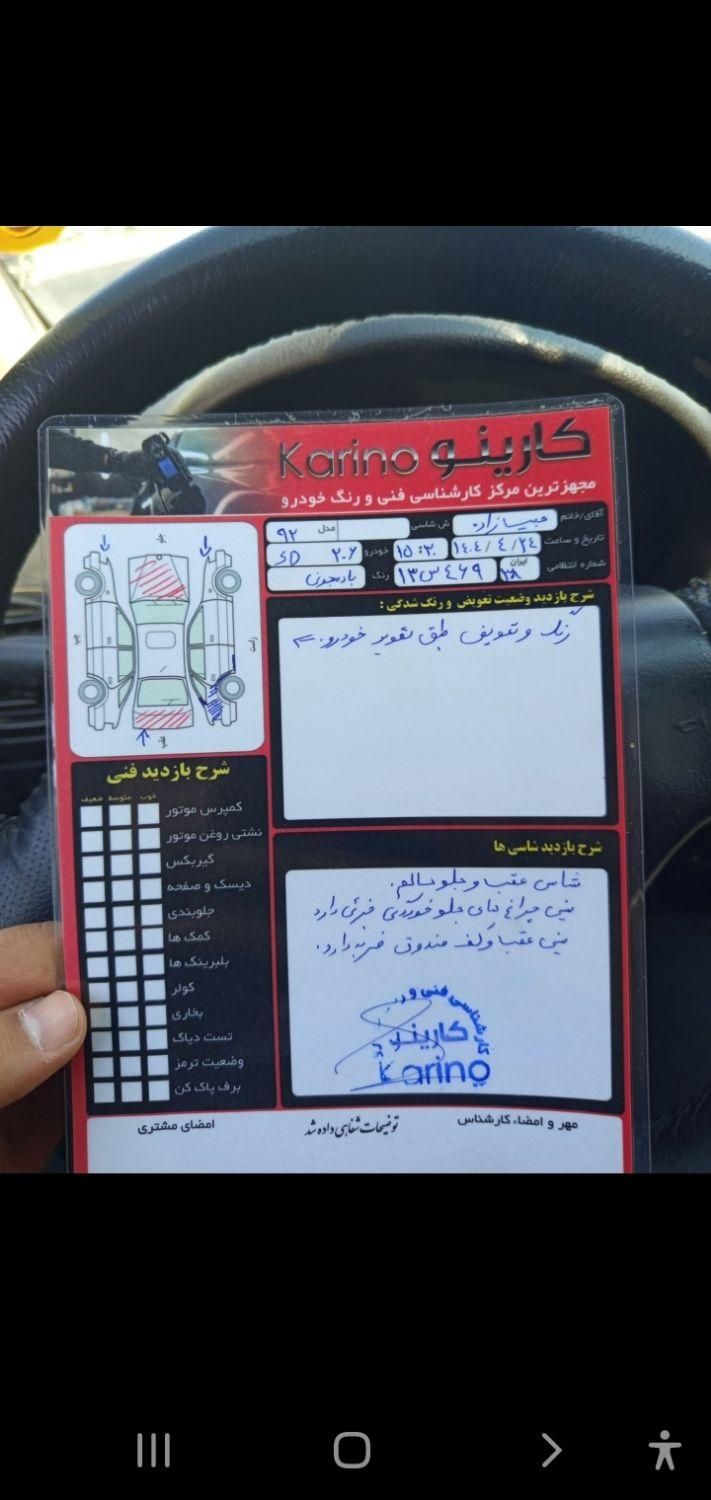 کارینو Karino
مجهزترین مرکز کارشناسی فنی و رنگ خودرو
آقای/خانم ش شاسی مدل ۹۲
تاریخ و ساعت ۱۴۰۴/۴/۲۴ ۱۵:۳۰ خودرو ۲۰۶ SD
شماره انتظامی ایران ۳۸ ۱۳س۴۶۹ رنگ بادمجونی
جلو
چپ
راست
عقب
شرح بازدید وضعیت تعویض و رنگ شدگی :
رنگ و تعویض طبق تصویر خودرو.
شرح بازدید فنی
خوب متوسط ضعیف
کمپرس موتور
نشتی روغن موتور
گیربکس
دیسک و صفحه
جلوبندی
کمک ها
بلبرینگ ها
کولر
بخاری
تست دیاگ
وضعیت ترمز
برف پاک کن
شرح بازدید شاسی ها
شاسی عقب و جلو سالم.
سینی چراغ های جلو خوردگی جزئی دارد
سینی عقب و کف صندوق ضربه دارد.
کارشناسی فنی و
کارینو
Karino
مهر و امضاء کارشناس
توضیحات شفاهی داده شد
امضای مشتری